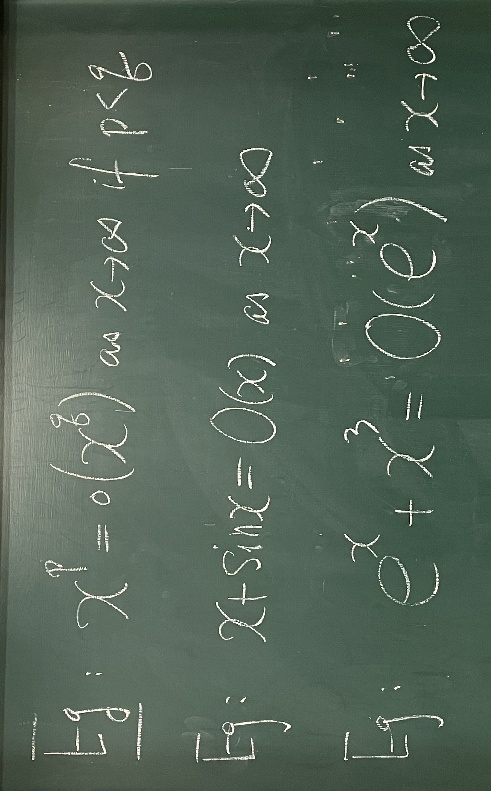 Eg: x^p = o(x^q) as x→∞ if p<q
Eg: x+sinx=O(x) as x→∞
Eg: e^x + x^3 = O(e^x) as x→∞